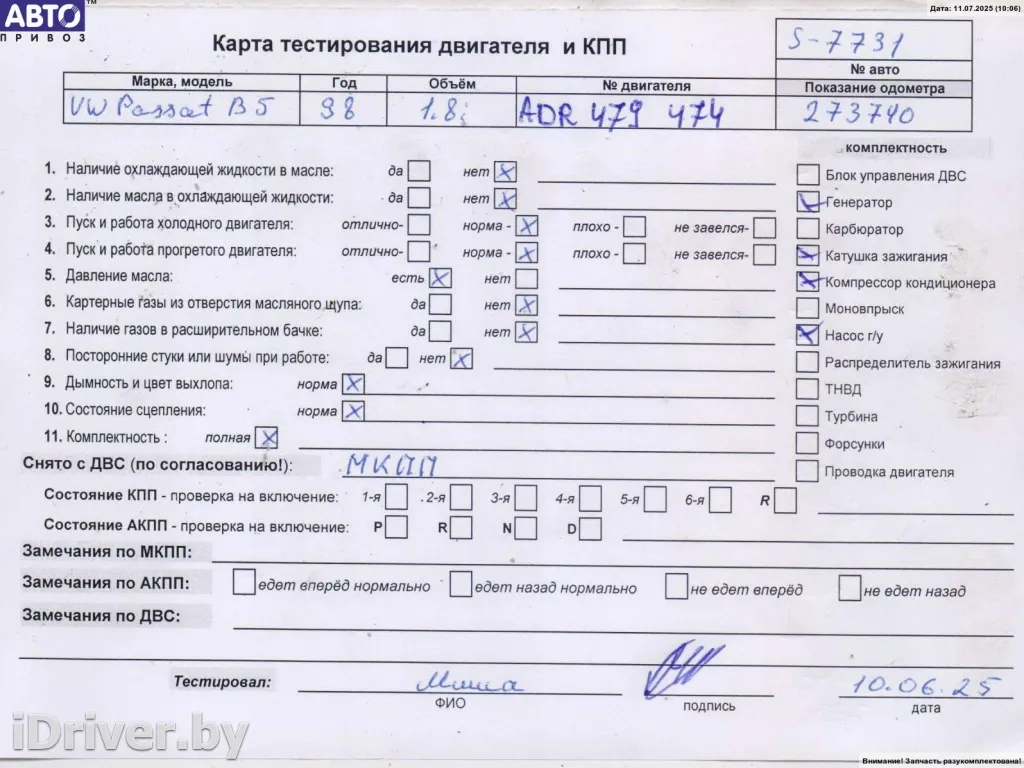 Дата: 11.07.2025 (10:06)
АВТО™
ПРИВОЗ
Карта тестирования двигателя и КПП
S-7731
№ авто
Марка, модель Год Объём № двигателя Показание одометра
VW Passat B5 98 1.8i ADR 479 474 273740
комплектность
1. Наличие охлаждающей жидкости в масле: да нет X
Блок управления ДВС
2. Наличие масла в охлаждающей жидкости: да нет X
Генератор
3. Пуск и работа холодного двигателя: отлично- норма - X плохо - не завелся-
Карбюратор
4. Пуск и работа прогретого двигателя: отлично- норма - X плохо - не завелся-
Катушка зажигания
5. Давление масла: есть X нет
Компрессор кондиционера
6. Картерные газы из отверстия масляного щупа: да нет X
Моновпрыск
7. Наличие газов в расширительном бачке: да нет X
Насос г/у
8. Посторонние стуки или шумы при работе: да нет X
Распределитель зажигания
9. Дымность и цвет выхлопа: норма X
ТНВД
10. Состояние сцепления: норма X
Турбина
11. Комплектность : полная X
Форсунки
Снято с ДВС (по согласованию!): МКПП
Проводка двигателя
Состояние КПП - проверка на включение: 1-я 2-я 3-я 4-я 5-я 6-я R
Состояние АКПП - проверка на включение: P R N D
Замечания по МКПП:
Замечания по АКПП: едет вперёд нормально едет назад нормально не едет вперёд не едет назад
Замечания по ДВС:
Тестировал: Миша 10.06.25
ФИО подпись дата
iDriver.by
Внимание! Запчасть разукомплектована!